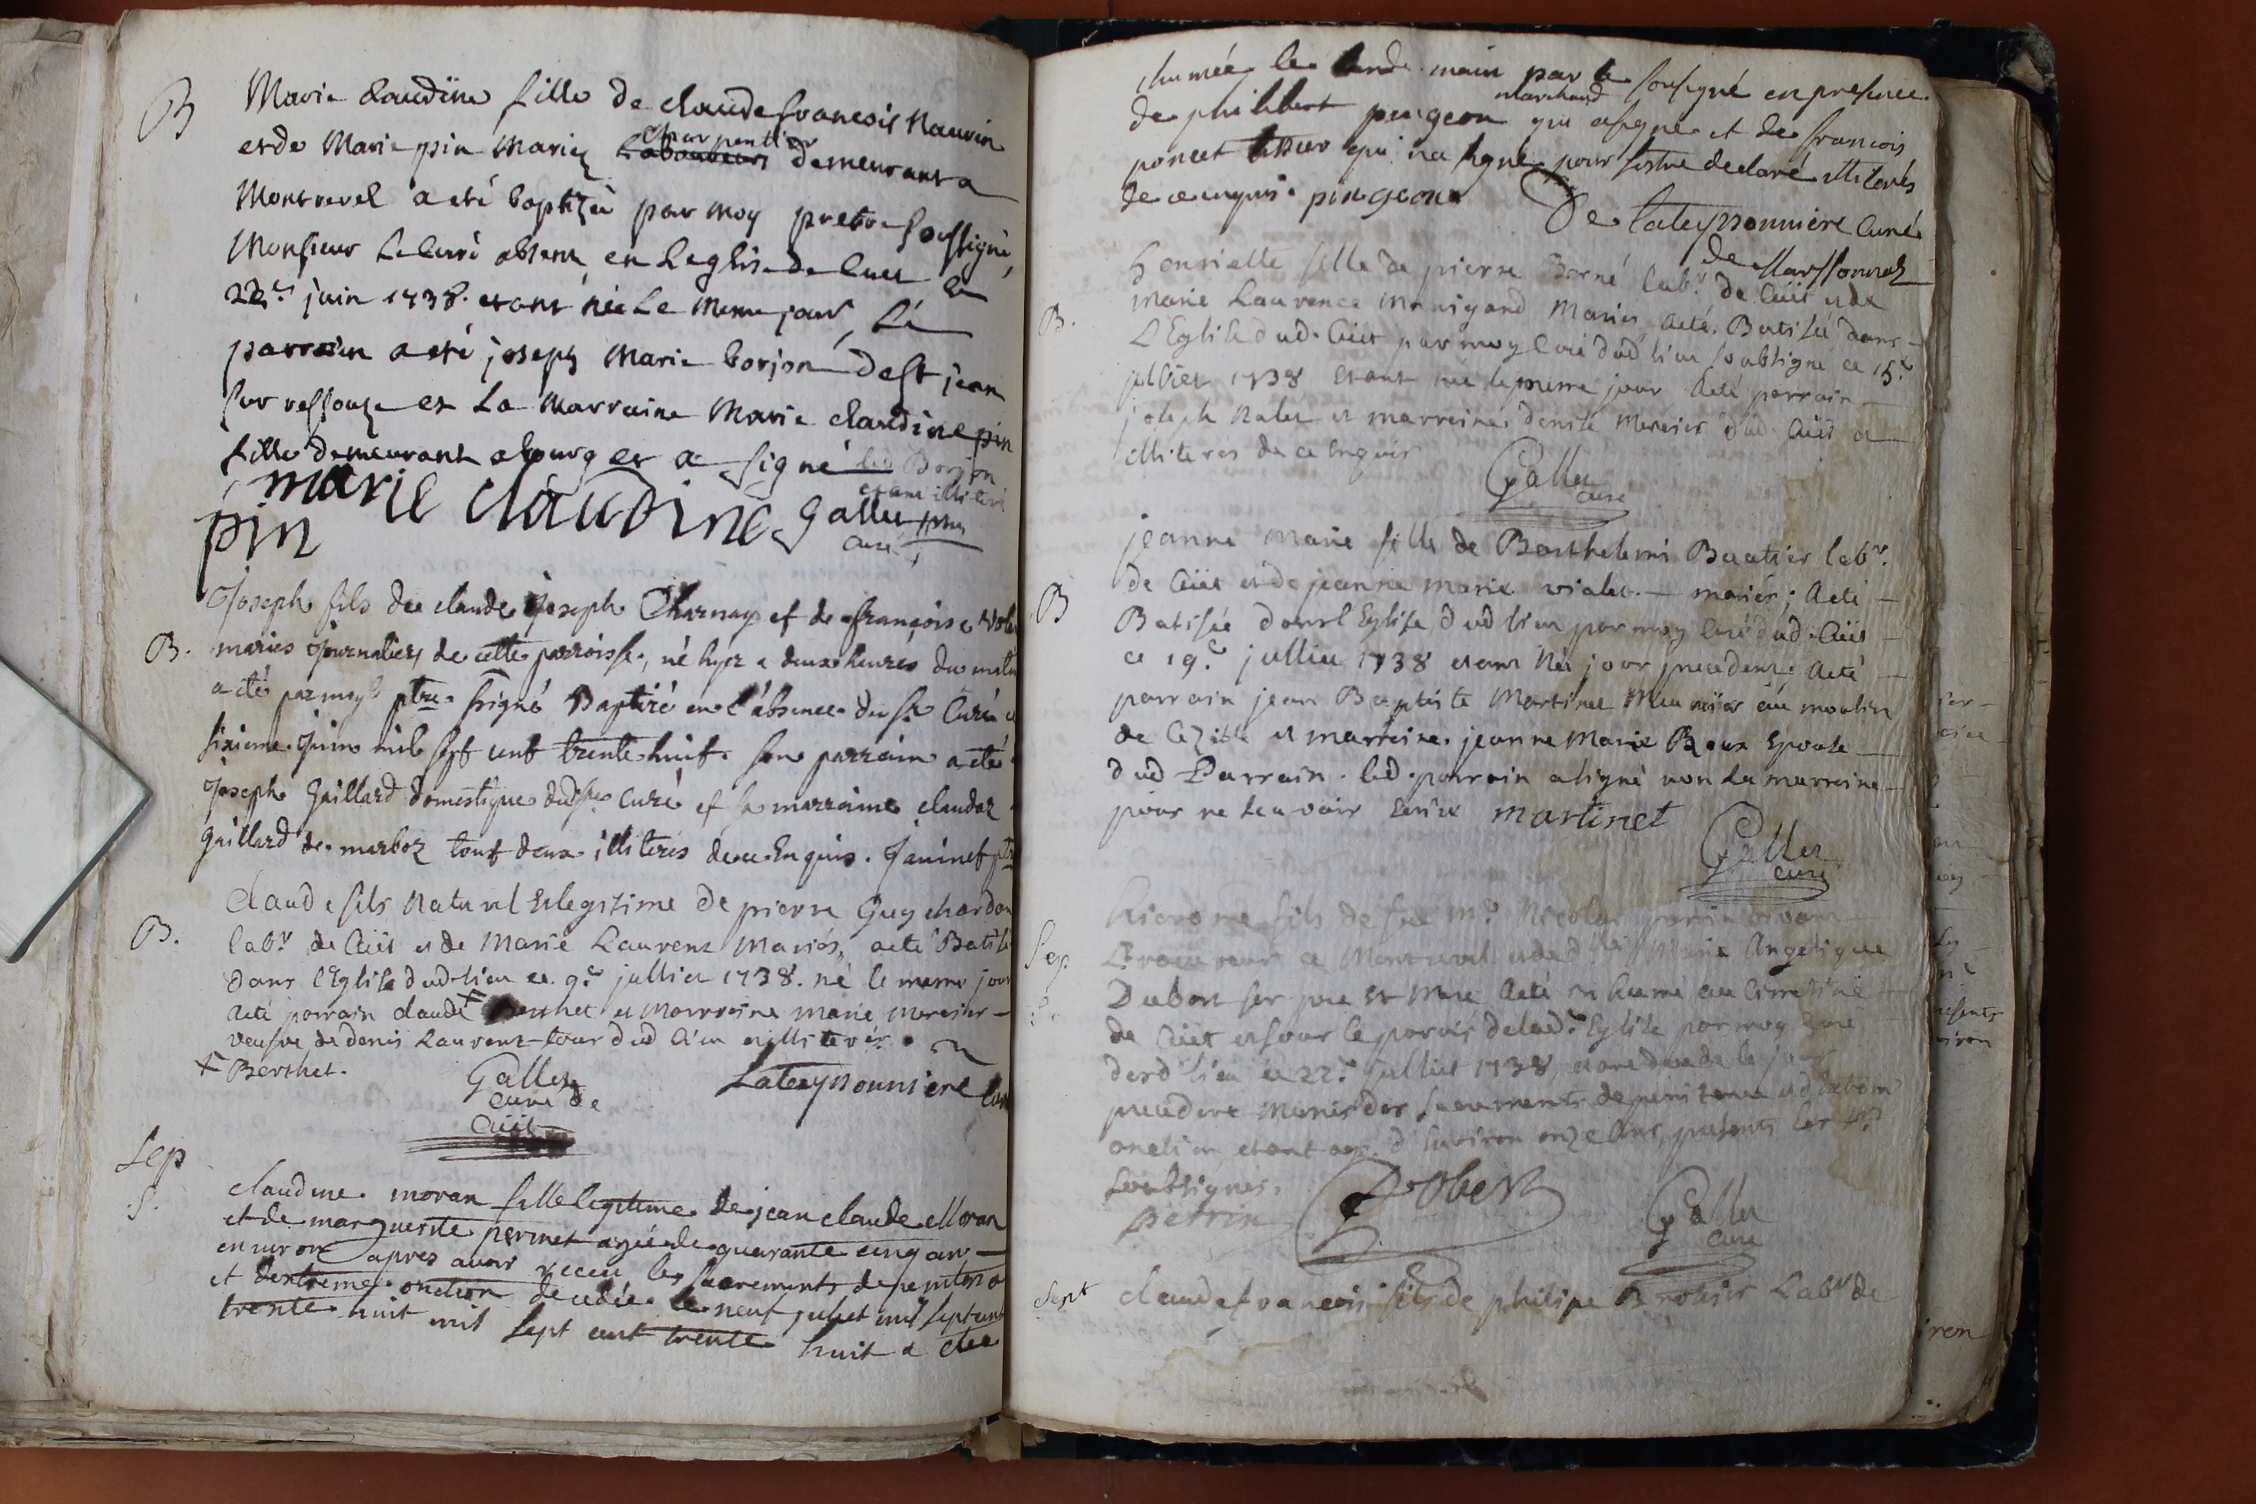 B
Marie Claudine fille de claude francois Maurin
et de Marie pin Mariez Charpentier demeurant a
Montrevel a eté baptizée par moy pretre soussigné,
Monsieur Le curé absent en Leglise de Cuet le
22e juin 1738. etant née Le meme jour, Le
parrain a eté joseph Marie borjon de st jean
sur ressouze et La Marraine Marie claudine pin
fille demeurant a bourg et a signé led Borjon
etant illiteré
marie claudine
pin
Gallet
curé
B.
Joseph fils de claude Joseph Charnay et de françoise
mariés Journaliers de cette parroisse, né hyer a deux heures du matin
a eté par moy ptre ssigné Baptizé en l'absence du sr Curé ce
sixieme Juin mil sept cent trente huit. son parrain a eté
Joseph Gaillard domestique dud sr Curé et sa marraine claudaz
gaillard de marboz tous deux illiterés de ce Enquis. Janinet ptre
B.
Claude fils Naturel et legitime de pierre Guychardon
labr de Cüet et de Marie Laurent Mariés, a eté Batisé
dans l'Eglise dud lieu ce 9e julliet 1738. né le meme jour
a eté parrain claude + Berthet et Marreine marie mercier
veufve de denis Laurent tour dud lieu illiterés
+ Berthet.
Gallet
curé de
Cüet
Lateyssonniere curé
Sep
S.
claudine moran fille legitime de jean claude Moran
et de marguerite perret agée de quarante cinq ans
environ apres avoir receu les sacrements de penitence
et dextreme onction decedée le neuf juliet mil sept cent
trente huit mil sept cent trente huit a etée
inhumée le lende main par le sousigné en presence
de philibert pingeon marchand qui a signé et de francois
poncet tissier qui na signé pour s'estre declaré illiterés
de ce enquis. pingeon
De lateyssonniere Curé
de Marssonnas
B.
Henriette fille de pierre Borné labr de Cüet et de
Marie Laurence Monigand Mariés, a eté Batisée dans
L'Eglise dud. Cüet par moy Curé dud lieu soubsigné ce 15e
julliet 1738 etant née le meme jour a eté parrain
joseph et marreine denise Mercier dud Cüet
illiteres de ce Enquis
Gallet
curé
B
jeanne Marie fille de Barthelemi Buatier labr
de Cüet et de jeanne marie violet mariés, a eté
Batisée dans l'Eglise dud lieu par moy Curé dud. Cüet
ce 19e julliet 1738 etant née jour precedent, a eté
parrain jean Baptiste Martinet Meunier au moulin
de et marreine jeanne Marie Roux Epouse
dud Parrain. led. parrain a signé non la marreine
pour ne scavoir Ecrire martinet
Gallet
curé
Sep
Hierome fils de feu Mr Nicolas perrin vivant
Procureur a Montrevel et de dlle Marie Angelique
Dubost ses pere et Mere a eté inhumé au Cimetiere
de Cüet et sous le parvis de lad. Eglise par moy Curé
dud lieu ce 22e julliet 1738, etant decedé le jour
precedent Munis des sacrements de penitence et d'extrem
onction, etant agé d'Environ onze Ans, presents les
soubsignés.
perrin
Robert
Gallet
curé
Sept
claude francois fils de philipe Brossier Labr de